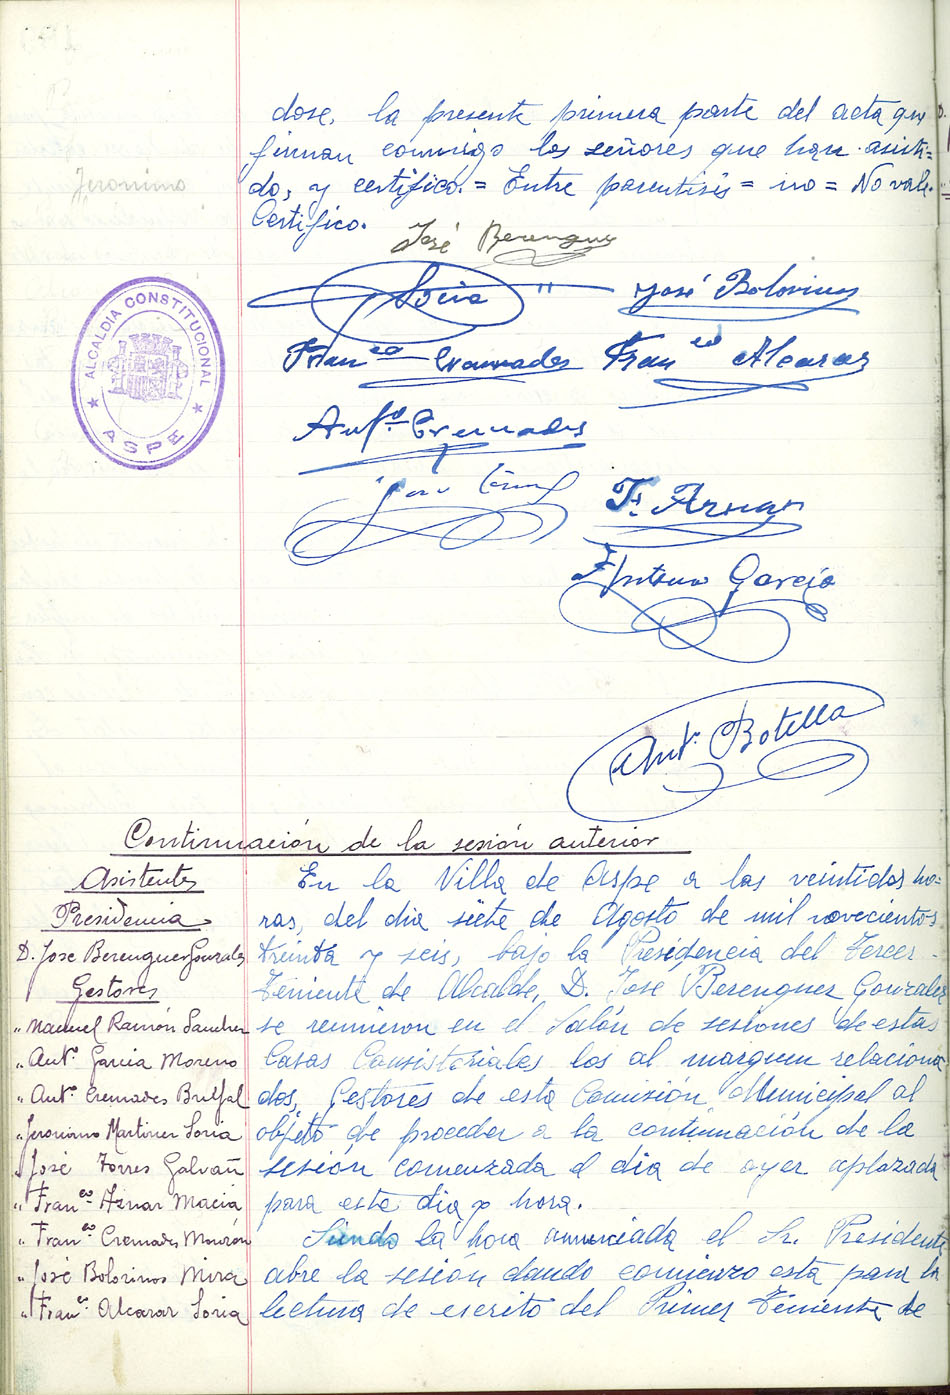 dose, la presente primera parte del acta que
firman conmigo los señores que han asisti=
do, y certifico. = Entre parentisis = no = No vale.
Certifico.
Jeronimo
José Berenguer
Soria
José Bolorinos
Fran.co Cremades
Fran.co Alcaraz
Ant.o Cremades
José Torres
F. Aznar
Antonio García
Ant.o Botella
ALCALDIA CONSTITUCIONAL
★ ASPE ★
Continuación de la sesión anterior
Asistentes
Presidencia
D. Jose Berenguer Gonzales
Gestores
" Manuel Ramón Sanchez
" Ant.o Garcia Moreno
" Ant.o Cremades Brufal
" Jeronimo Martinez Soria
" José Torres Galvañ
" Fran.co Aznar Maciá
" Fran.co Cremades Monzón
" José Bolorinos Mira
" Fran.co Alcaraz Soria
En la Villa de Aspe a las veintidos ho-
ras, del dia siete de Agosto de mil novecientos
treinta y seis, bajo la Presidencia del Tercer
Teniente de Alcalde, D. José Berenguer Gonzales
se reunieron en el Salón de sesiones de estas
Casas Consistoriales los al marguen relaciona
dos, Gestores de esta Comisión Municipal al
objeto de proceder a la continuación de la
sesión comenzada el dia de ayer aplazada
para este dia y hora.
Siendo la hora anunciada el Sr. Presidente
abre la sesión dando comienzo esta para la
lectura de escrito del Primer Teniente de